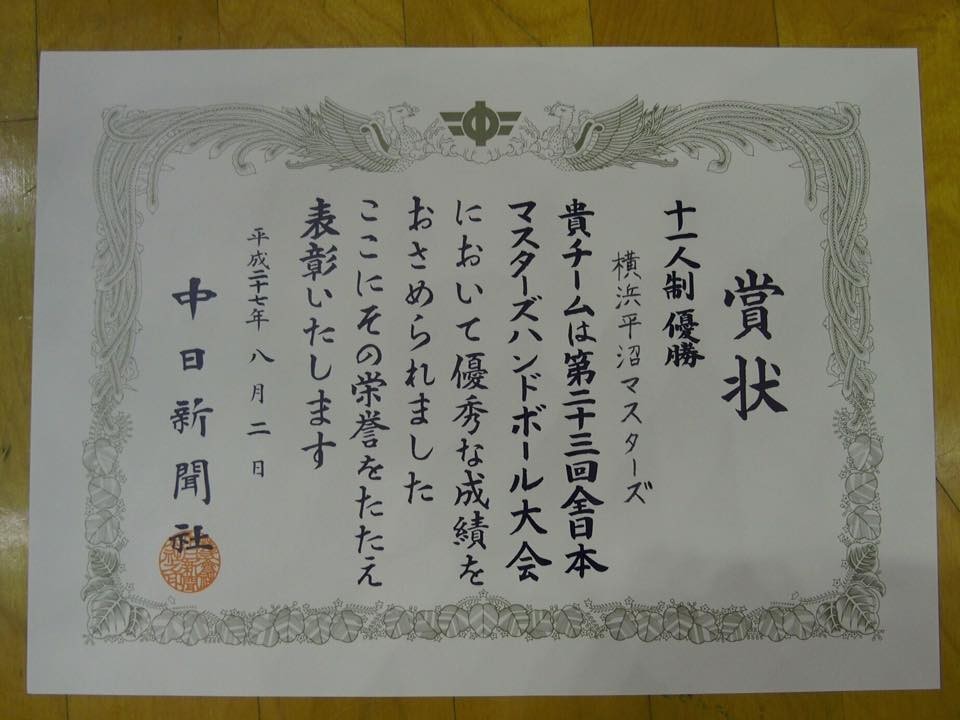 賞状
十一人制優勝
横浜平沼マスターズ
貴チームは第二十三回全日本
マスターズハンドボール大会
において優秀な成績を
おさめられました
ここにその栄誉をたたえ
表彰いたします
平成二十七年八月二日
中日新聞社
中